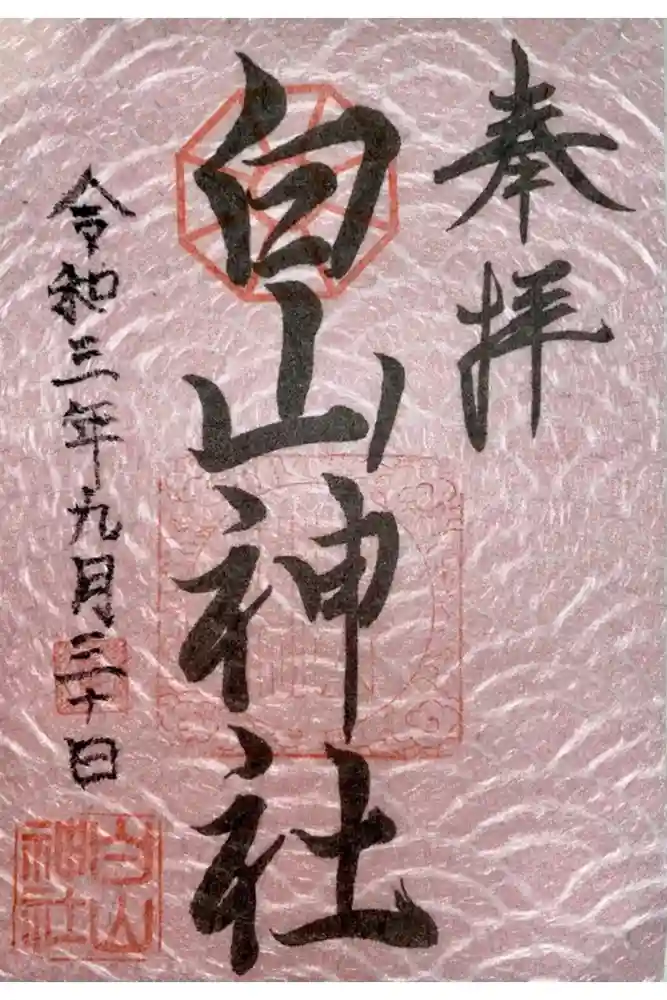 奉拝
白山神社
令和三年九月三十日
白山神社